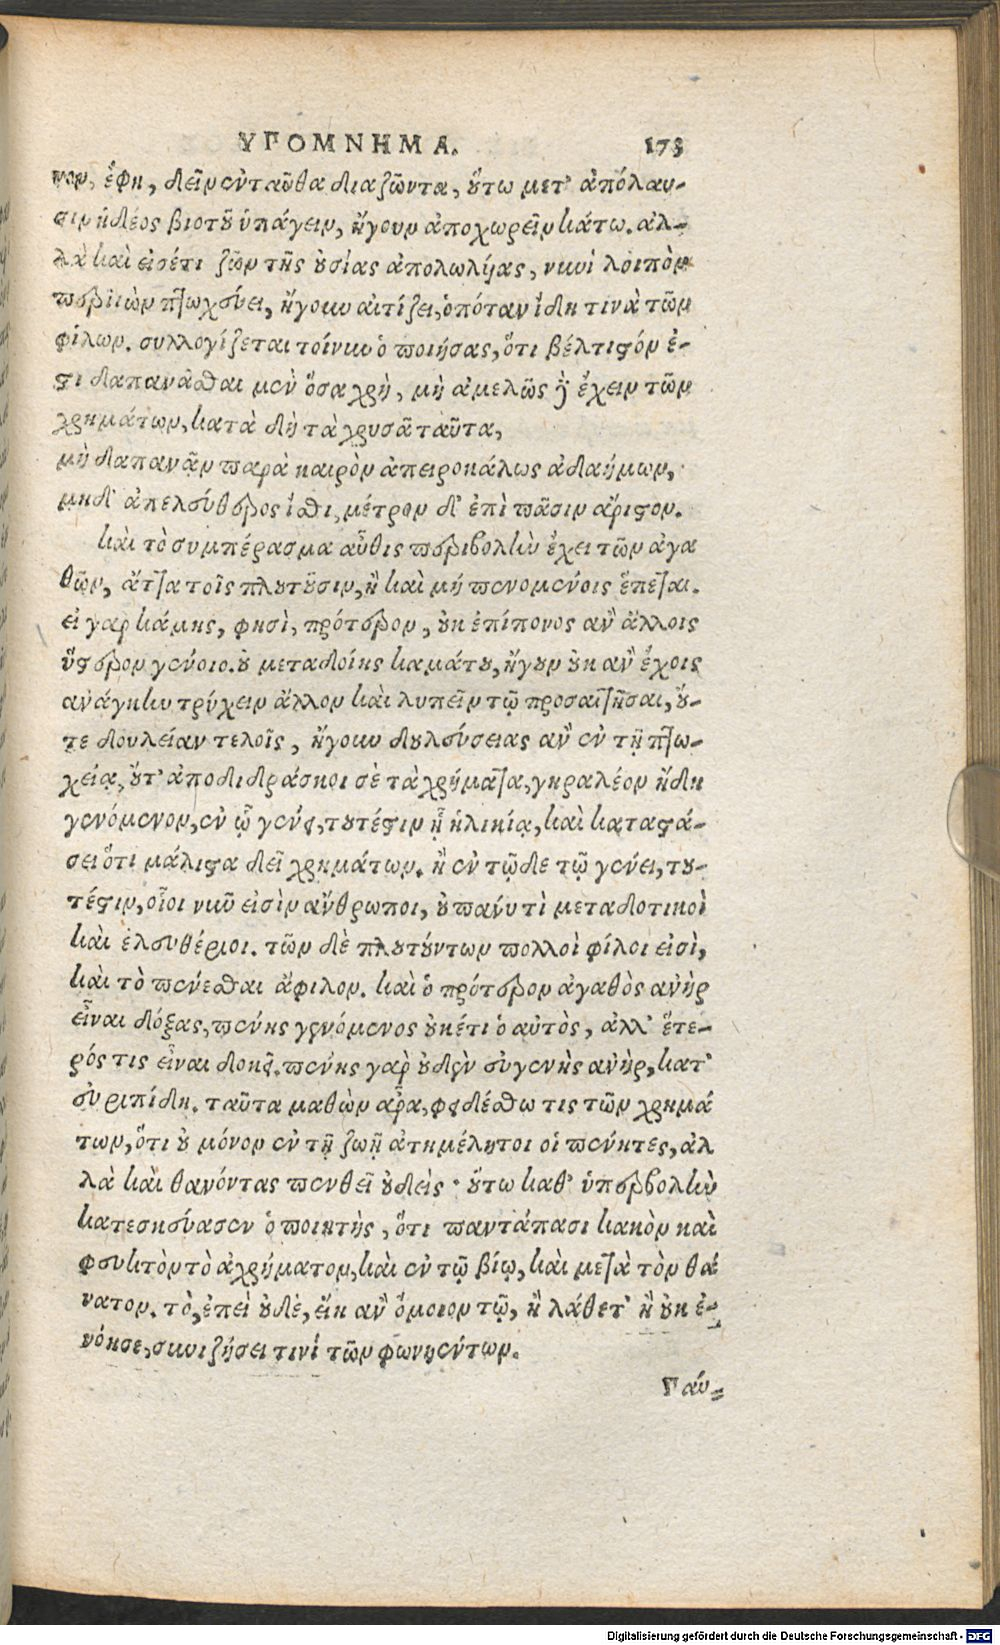 ΥΠΟΜΝΗΜΑ. 173
νον, ἔφη, δεῖν ἐνταῦθα διαζῶντα, ὅτω μετ' ἀπόλαυ-
σιν ἡδέος βιοτȣ ὑπάγειν, ἤγουν ἀποχωρεῖν κάτω. ἀλ-
λὰ καὶ εἰσέτι ζῶν τῆς ȣσίας ἀπολωλήας, νυνὶ λοιπὸν
περιιὼν πτωχεύει, ἤγουν αἰτίζει, ὁπόταν ἴδη τινὰ τῶν
φίλων. συλλογίζεται τοίνυν ὁ ποιήσας, ὅτι βέλτιστόν ἐ-
στι δαπανᾶσθαι μὲν ὅσα χρὴ, μὴ ἀμελῶς ἢ ἔχειν τῶν
χρημάτων, κατὰ δὴ τὰ χρυσᾶ ταῦτα,
μὴ δαπανᾷν παρὰ καιρὸν ἀπειροκάλως ἀδαήμων,
μηδ' ἀνελεύθερος ἴσθι, μέτρον δ' ἐπὶ πᾶσιν ἄριστον.
καὶ τὸ συμπέρασμα αὖθις περιβολὴν ἔχει τῶν ἀγα
θῶν, ἅττα τοῖς πλȣτȣσιν, ἢ καὶ μὴ πενομένοις ἕπεται.
εἰ γαρ κάμης, φησὶ, πρότερον, ȣκ ἐπίπονος ἂν ἄλλοις
ὕστερον γένοιο. ȣ μεταδοίης καμάτȣ, ἤγȣν ȣκ ἂν ἔχοις
ἀνάγκην τρύχειν ἄλλον καὶ λυπεῖν τῷ προσαιτῆσαι, ȣ-
τε δουλείαν τελοῖς, ἤγουν δȣλεύσειας ἂν ἐν τῇ πτω-
χείᾳ, ȣτ' ἀποδιδράσκοι σὲ τὰ χρήματα, γηραλέον ἤδη
γενόμενον, ἐν ᾧ γένει, τȣτέστιν ᾗ ἡλικίᾳ, καὶ καταστά-
σει ὅτι μάλιστα δεῖ χρημάτων. ἢ ἐν τῷδε τῷ γένει, τȣ-
τέστιν, οἷοι νῦν εἰσὶν ἄνθρωποι, ȣ πάνυ τὶ μεταδοτικοὶ
καὶ ἐλευθέριοι. τῶν δὲ πλȣτȣντων πολλοὶ φίλοι εἰσὶ,
καὶ τὸ πένεσθαι ἄφιλον. καὶ ὁ πρότερον ἀγαθὸς ἀνὴρ
εἶναι δόξας, πένης γενόμενος ȣκέτι ὁ αὐτὸς, ἀλλ' ἕτε-
ρός τις εἶναι δοκεῖ. πένης γαρ ȣδὲν εὐγενὴς ἀνὴρ, κατ'
εὐριπίδη. ταῦτα μαθὼν ἆρα, φειδέσθω τις τῶν χρημά
των, ὅτι ȣ μόνον ἐν τῇ ζωῇ ἀτημέλητοι οἱ πένητες, ἀλ
λὰ καὶ θανόντας πενθεῖ ȣδείς· ȣτω καθ' ὑπερβολὴν
κατεσκεύασεν ὁ ποιητὴς, ὅτι παντάπασι κακὸν καὶ
φευκτὸν τὸ ἀχρήματον, καὶ ἐν τῷ βίῳ, καὶ μετὰ τὸν θά
νατον. τὸ, ἐπεὶ ȣδὲ, εἴη ἂν ὅμοιον τῷ, ἢ λάθετ' ἢ ȣκ ἐ-
νόησε, συνιζήσει τινὶ τῶν φωνηέντων.
Γαύ-
Digitalisierung gefördert durch die Deutsche Forschungsgemeinschaft - DFG